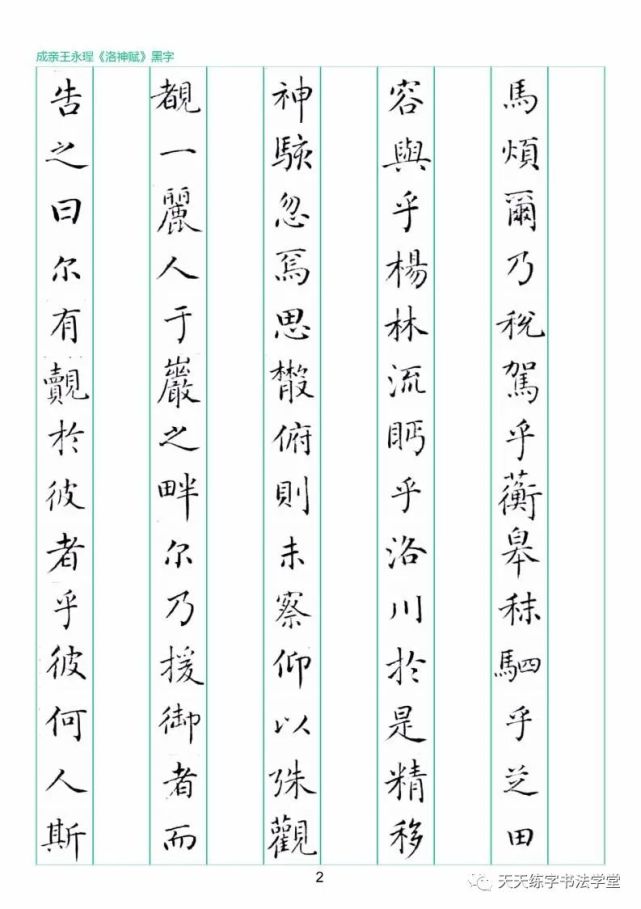 成亲王永瑆《洛神赋》黑字
馬煩爾乃稅駕乎蘅皋秣駟乎芝田
容與乎楊林流眄乎洛川於是精移
神駭忽焉思散俯則未察仰以殊觀
覩一麗人于巖之畔尔乃援御者而
告之曰尔有覿於彼者乎彼何人斯
2
天天练字书法学堂